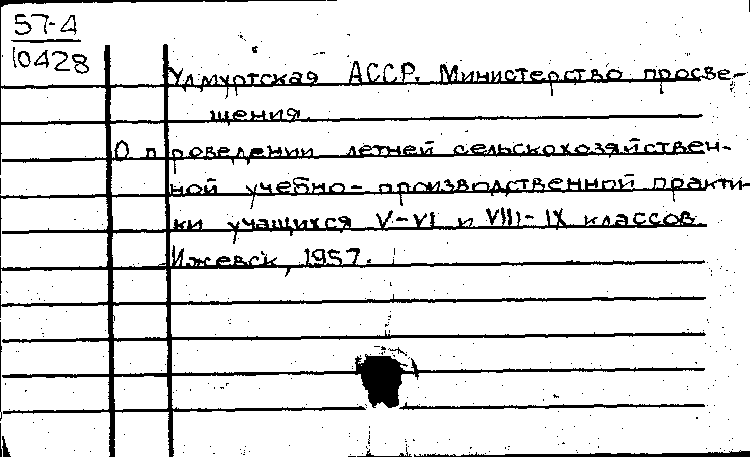 57-4
10428
Удмуртская АССР. Министерство просве-
щения.
О проведении летней сельскохозяйствен-
ной учебно-производственной практи-
ки учащихся V-VI и VIII-IX классов
Ижевск, 1957.